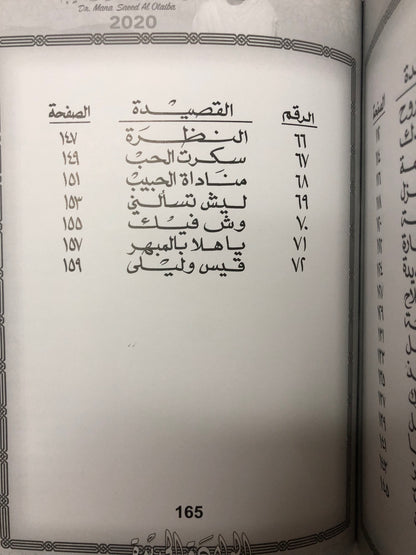 Dr. Mana Saeed Al Otaiba
2020
الرقم القصيدة الصفحة
٦٦ النظرة ١٤٧
٦٧ سكرت الحب ١٤٩
٦٨ مناداة الحبيب ١٥١
٦٩ ليش تسألني ١٥٣
٧٠ وش فيك ١٥٥
٧١ ياهلا بالمبهر ١٥٧
٧٢ قيس وليلى ١٥٩
165